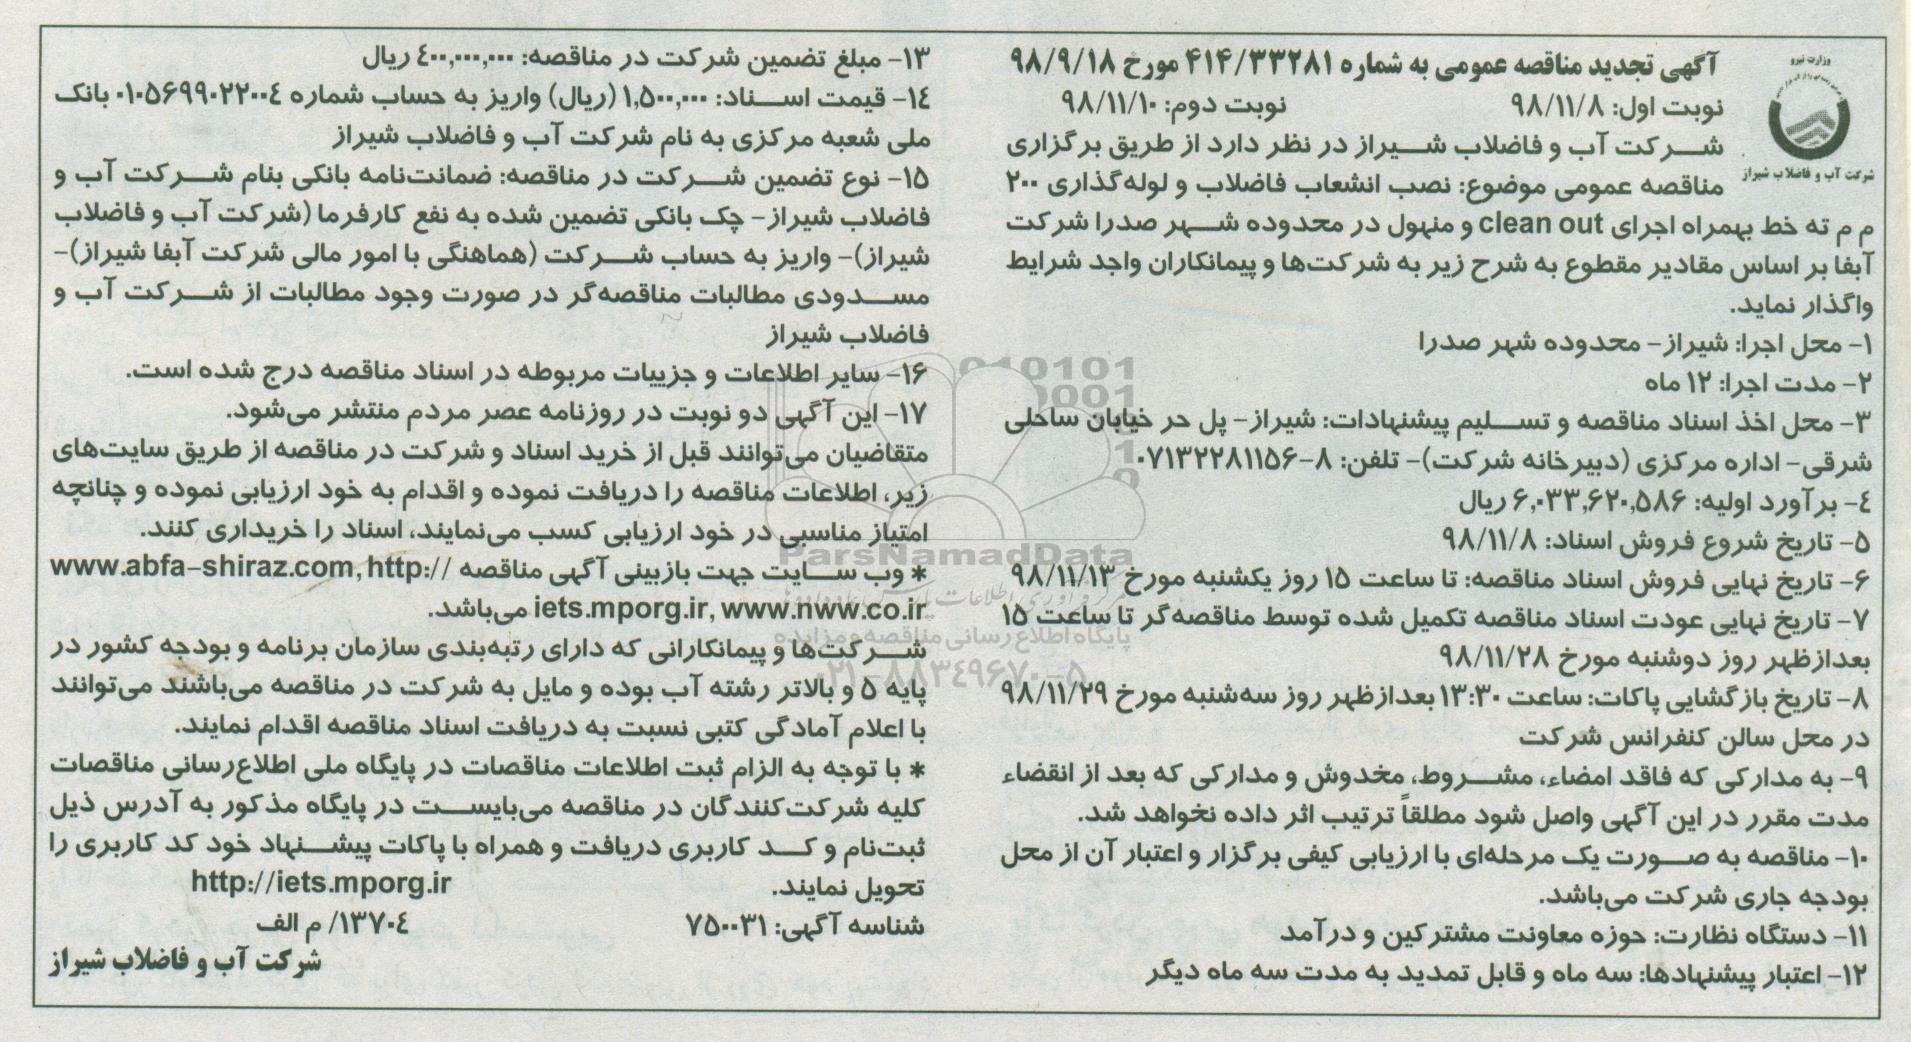 وزارت نیرو
شرکت آب و فاضلاب شیراز
آگهی تجدید مناقصه عمومی به شماره ۴۱۴/۳۳۲۸۱ مورخ ۹۸/۹/۱۸
نوبت اول: ۹۸/۱۱/۸ نوبت دوم: ۹۸/۱۱/۱۰
شرکت آب و فاضلاب شیراز در نظر دارد از طریق برگزاری
مناقصه عمومی موضوع: نصب انشعاب فاضلاب و لوله‌گذاری ۲۰۰
م م ته خط بهمراه اجرای clean out و منهول در محدوده شهر صدرا شرکت
آبفا بر اساس مقادیر مقطوع به شرح زیر به شرکت‌ها و پیمانکاران واجد شرایط
واگذار نماید.
۱- محل اجرا: شیراز- محدوده شهر صدرا
۲- مدت اجرا: ۱۲ ماه
۳- محل اخذ اسناد مناقصه و تسلیم پیشنهادات: شیراز- پل حر خیابان ساحلی
شرقی- اداره مرکزی (دبیرخانه شرکت)- تلفن: ۸-۰۷۱۳۲۲۸۱۱۵۶
۴- برآورد اولیه: ۶,۰۳۳,۶۲۰,۵۸۶ ریال
۵- تاریخ شروع فروش اسناد: ۹۸/۱۱/۸
۶- تاریخ نهایی فروش اسناد مناقصه: تا ساعت ۱۵ روز یکشنبه مورخ ۹۸/۱۱/۱۳
۷- تاریخ نهایی عودت اسناد مناقصه تکمیل شده توسط مناقصه‌گر تا ساعت ۱۵
بعدازظهر روز دوشنبه مورخ ۹۸/۱۱/۲۸
۸- تاریخ بازگشایی پاکات: ساعت ۱۳:۳۰ بعدازظهر روز سه‌شنبه مورخ ۹۸/۱۱/۲۹
در محل سالن کنفرانس شرکت
۹- به مدارکی که فاقد امضاء، مشروط، مخدوش و مدارکی که بعد از انقضاء
مدت مقرر در این آگهی واصل شود مطلقاً ترتیب اثر داده نخواهد شد.
۱۰- مناقصه به صورت یک مرحله‌ای با ارزیابی کیفی برگزار و اعتبار آن از محل
بودجه جاری شرکت می‌باشد.
۱۱- دستگاه نظارت: حوزه معاونت مشترکین و درآمد
۱۲- اعتبار پیشنهادها: سه ماه و قابل تمدید به مدت سه ماه دیگر
۱۳- مبلغ تضمین شرکت در مناقصه: ۴۰۰,۰۰۰,۰۰۰ ریال
۱۴- قیمت اسناد: ۱,۵۰۰,۰۰۰ (ریال) واریز به حساب شماره ۰۱۰۵۶۹۹۰۲۲۰۰۴ بانک
ملی شعبه مرکزی به نام شرکت آب و فاضلاب شیراز
۱۵- نوع تضمین شرکت در مناقصه: ضمانت‌نامه بانکی بنام شرکت آب و
فاضلاب شیراز- چک بانکی تضمین شده به نفع کارفرما (شرکت آب و فاضلاب
شیراز)- واریز به حساب شرکت (هماهنگی با امور مالی شرکت آبفا شیراز)-
مسدودی مطالبات مناقصه‌گر در صورت وجود مطالبات از شرکت آب و
فاضلاب شیراز
۱۶- سایر اطلاعات و جزییات مربوطه در اسناد مناقصه درج شده است.
۱۷- این آگهی دو نوبت در روزنامه عصر مردم منتشر می‌شود.
متقاضیان می‌توانند قبل از خرید اسناد و شرکت در مناقصه از طریق سایت‌های
زیر، اطلاعات مناقصه را دریافت نموده و اقدام به خود ارزیابی نموده و چنانچه
امتیاز مناسبی در خود ارزیابی کسب می‌نمایند، اسناد را خریداری کنند.
* وب سایت جهت بازبینی آگهی مناقصه www.abfa-shiraz.com, http://
iets.mporg.ir, www.nww.co.ir می‌باشد.
شرکت‌ها و پیمانکارانی که دارای رتبه‌بندی سازمان برنامه و بودجه کشور در
پایه ۵ و بالاتر رشته آب بوده و مایل به شرکت در مناقصه می‌باشند می‌توانند
با اعلام آمادگی کتبی نسبت به دریافت اسناد مناقصه اقدام نمایند.
* با توجه به الزام ثبت اطلاعات مناقصات در پایگاه ملی اطلاع‌رسانی مناقصات
کلیه شرکت‌کنندگان در مناقصه می‌بایست در پایگاه مذکور به آدرس ذیل
ثبت‌نام و کد کاربری دریافت و همراه با پاکات پیشنهاد خود کد کاربری را
تحویل نمایند. http://iets.mporg.ir
شناسه آگهی: ۷۵۰۰۳۱ ۱۳۷۰۴/ م الف
شرکت آب و فاضلاب شیراز
ParsNamadData
پایگاه اطلاع رسانی مناقصه و مزایده
۰۲۱-۸۸۳۴۹۶۷۰-۵